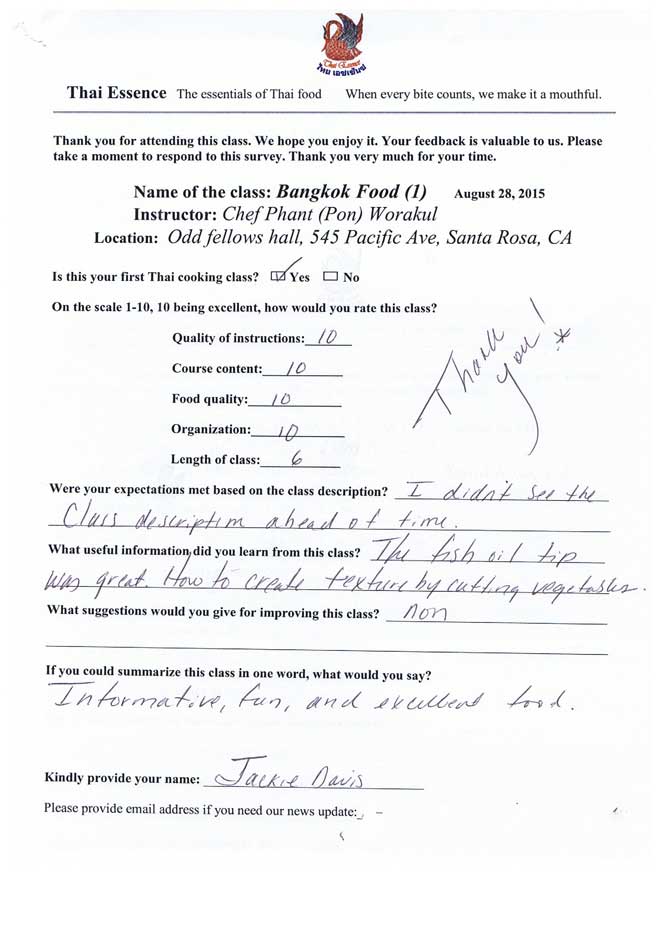 Thai Essence
ไทย เอซเซ้นซ์
Thai Essence The essentials of Thai food When every bite counts, we make it a mouthful.
Thank you for attending this class. We hope you enjoy it. Your feedback is valuable to us. Please
take a moment to respond to this survey. Thank you very much for your time.
Name of the class: Bangkok Food (1) August 28, 2015
Instructor: Chef Phant (Pon) Worakul
Location: Odd fellows hall, 545 Pacific Ave, Santa Rosa, CA
Is this your first Thai cooking class? Yes No
On the scale 1-10, 10 being excellent, how would you rate this class?
Quality of instructions: 10
Course content: 10
Food quality: 10
Organization: 10
Length of class: 6
Thank
you! *
Were your expectations met based on the class description? I didn't see the
Class description ahead of time.
What useful information did you learn from this class? The fish oil tip
was great. How to create texture by cutting vegetables.
What suggestions would you give for improving this class? non
If you could summarize this class in one word, what would you say?
Informative, fun, and excellent food.
Kindly provide your name: Jackie Davis
Please provide email address if you need our news update: -